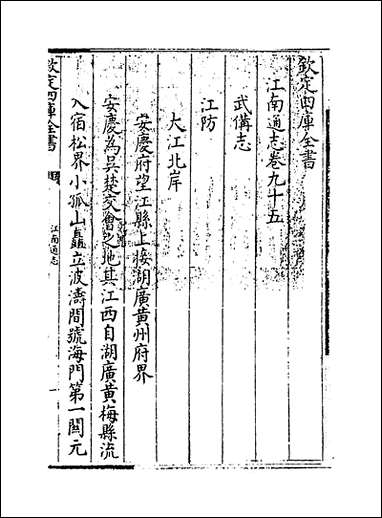 欽定四庫全書
江南通志卷九十五
武備志
江防
大江北岸
安慶府望江縣上接湖廣黃州府界
安慶為吳楚交會之地其江西自湖廣黃梅縣流
入宿松界小孤山矗立波濤間號海門第一關元
欽定四庫全書
江南通志
一